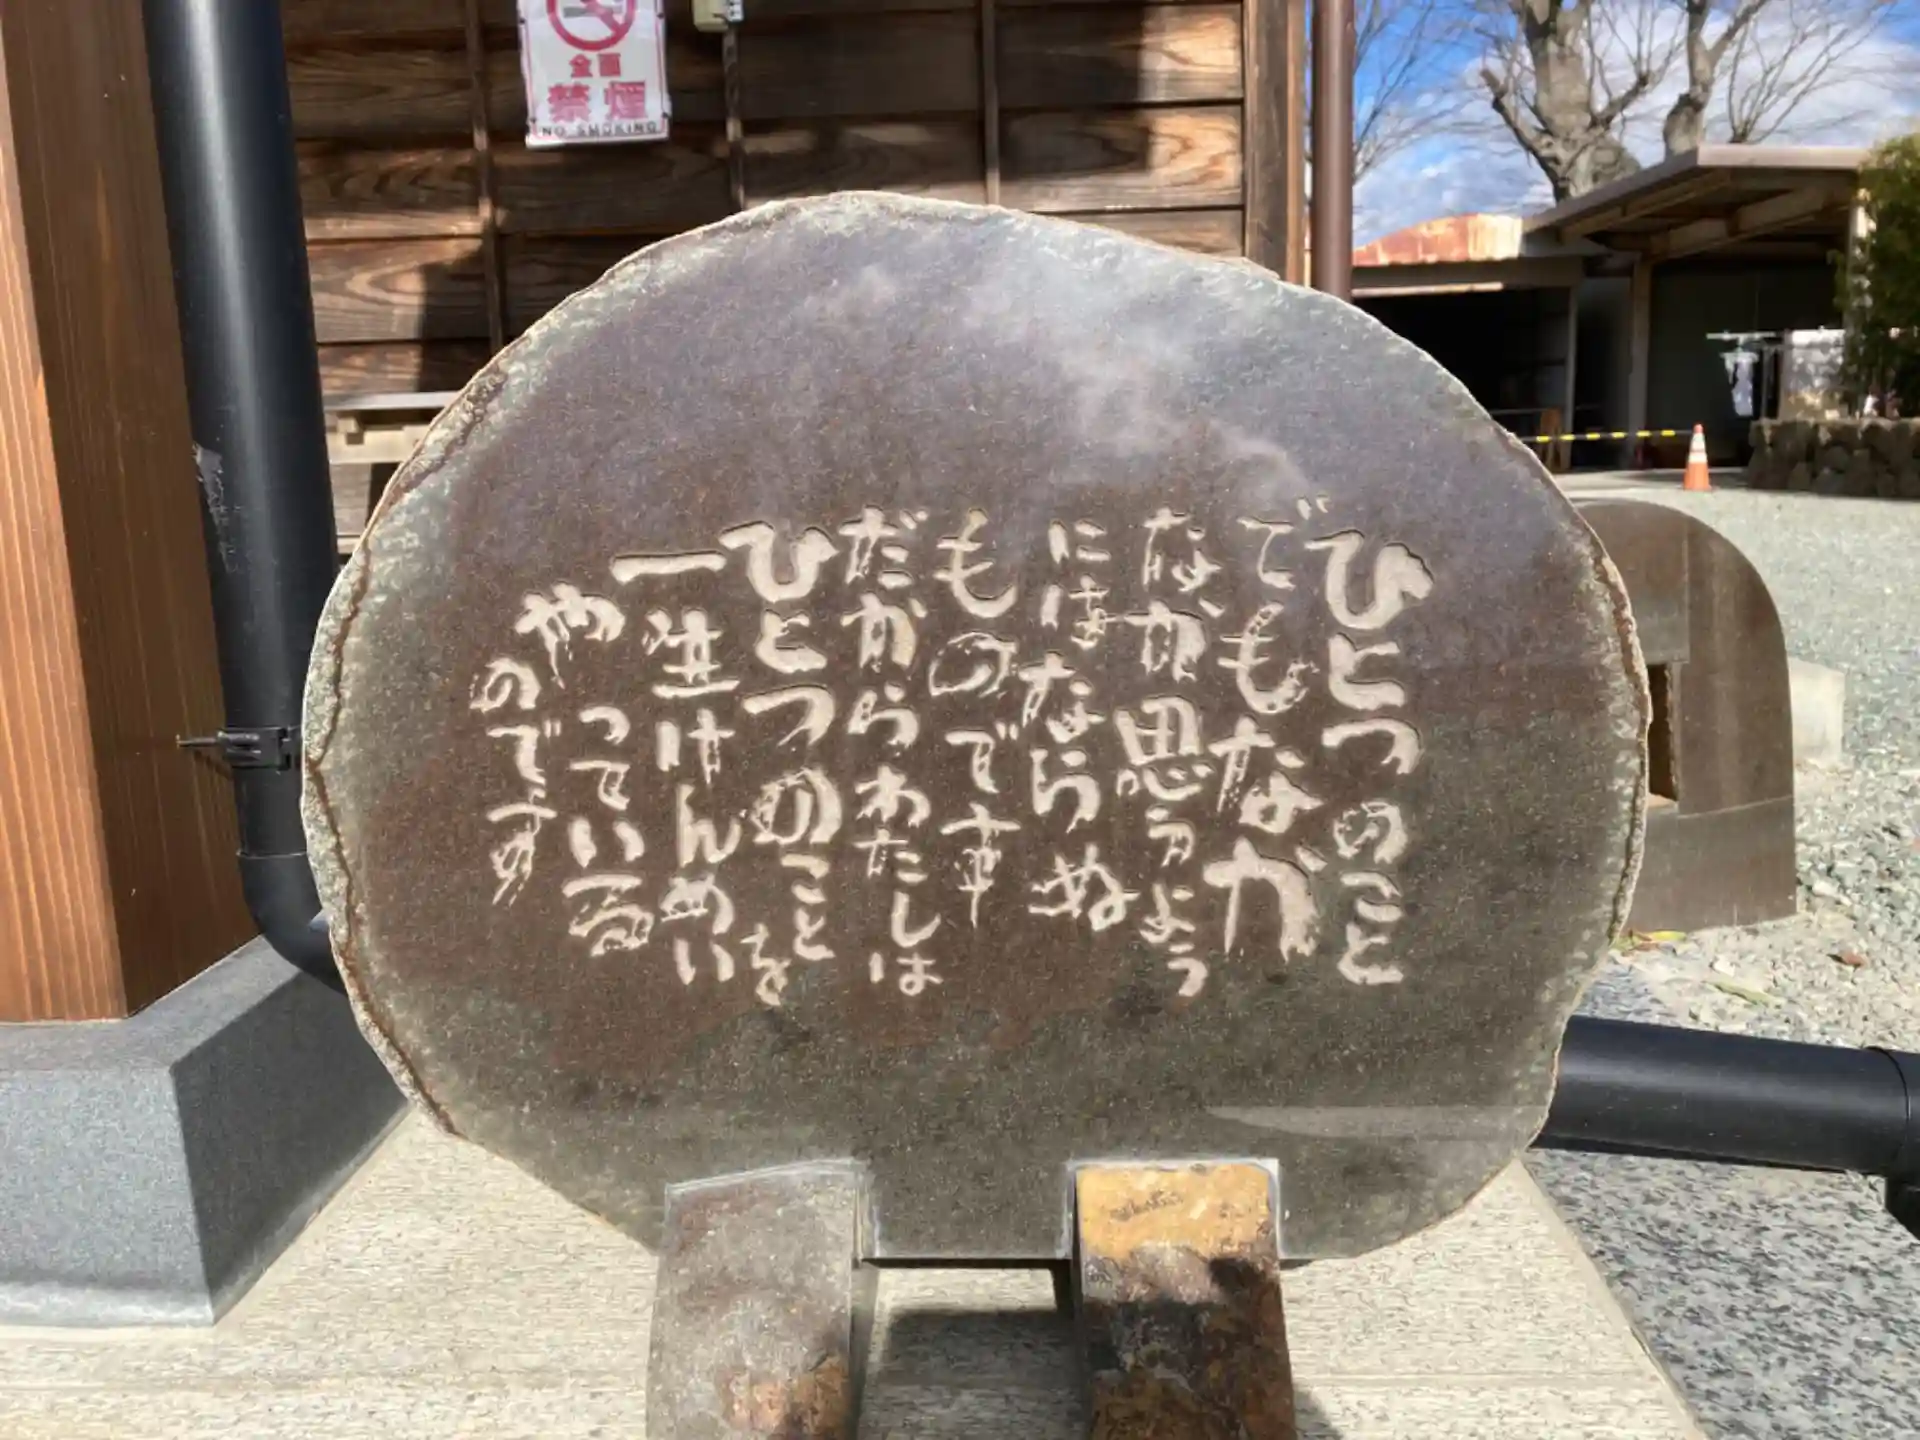 全面
禁煙
NO SMOKING
ひとつのこと
でもなかな
なか思うよう
にはならぬ
ものです
だからわたしは
ひとつのことを
一生けんめい
やっている
のです